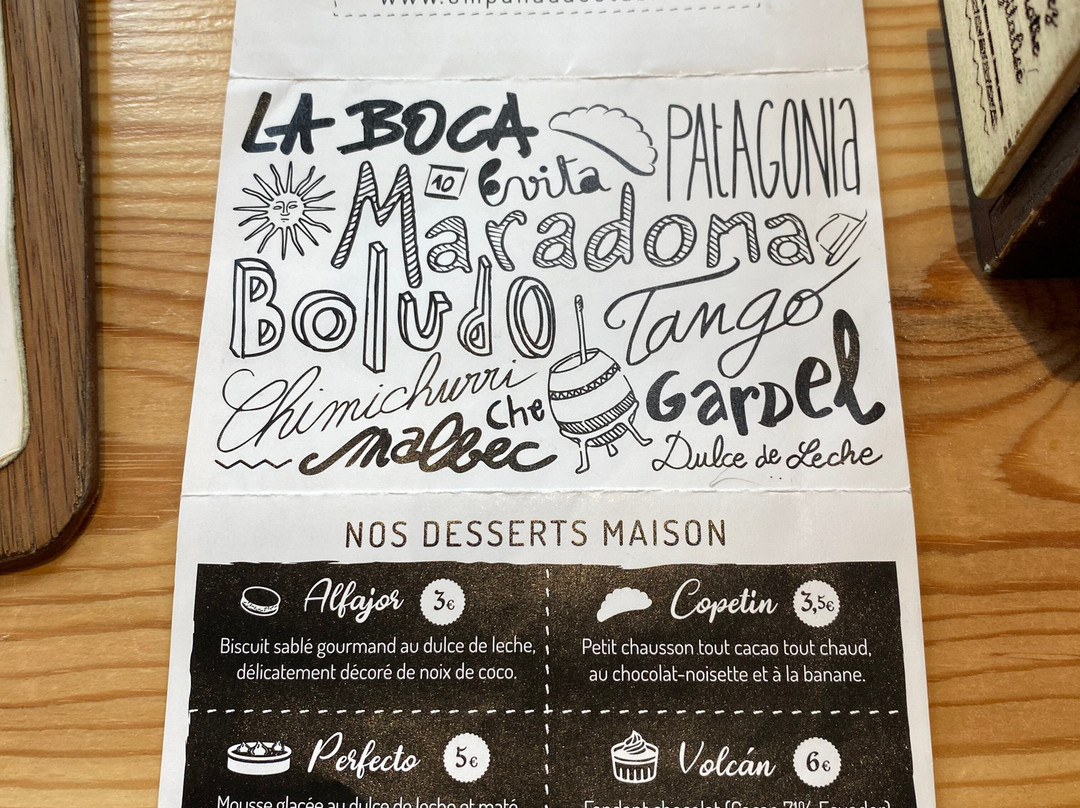 LA BOCA
PATAGONIA
10
Evita
Maradona
Boludo
Tango
Chimichurri
Che
Gardel
Malbec
Dulce de Leche
NOS DESSERTS MAISON
Alfajor 3€
Biscuit sablé gourmand au dulce de leche,
délicatement décoré de noix de coco.
Copetin 3,5€
Petit chausson tout cacao tout chaud,
au chocolat-noisette et à la banane.
Perfecto 5€
Mousse glacée au dulce de leche et maté
Volcán 6€
Fondant chocolat (Cacao 71% Ecuador)